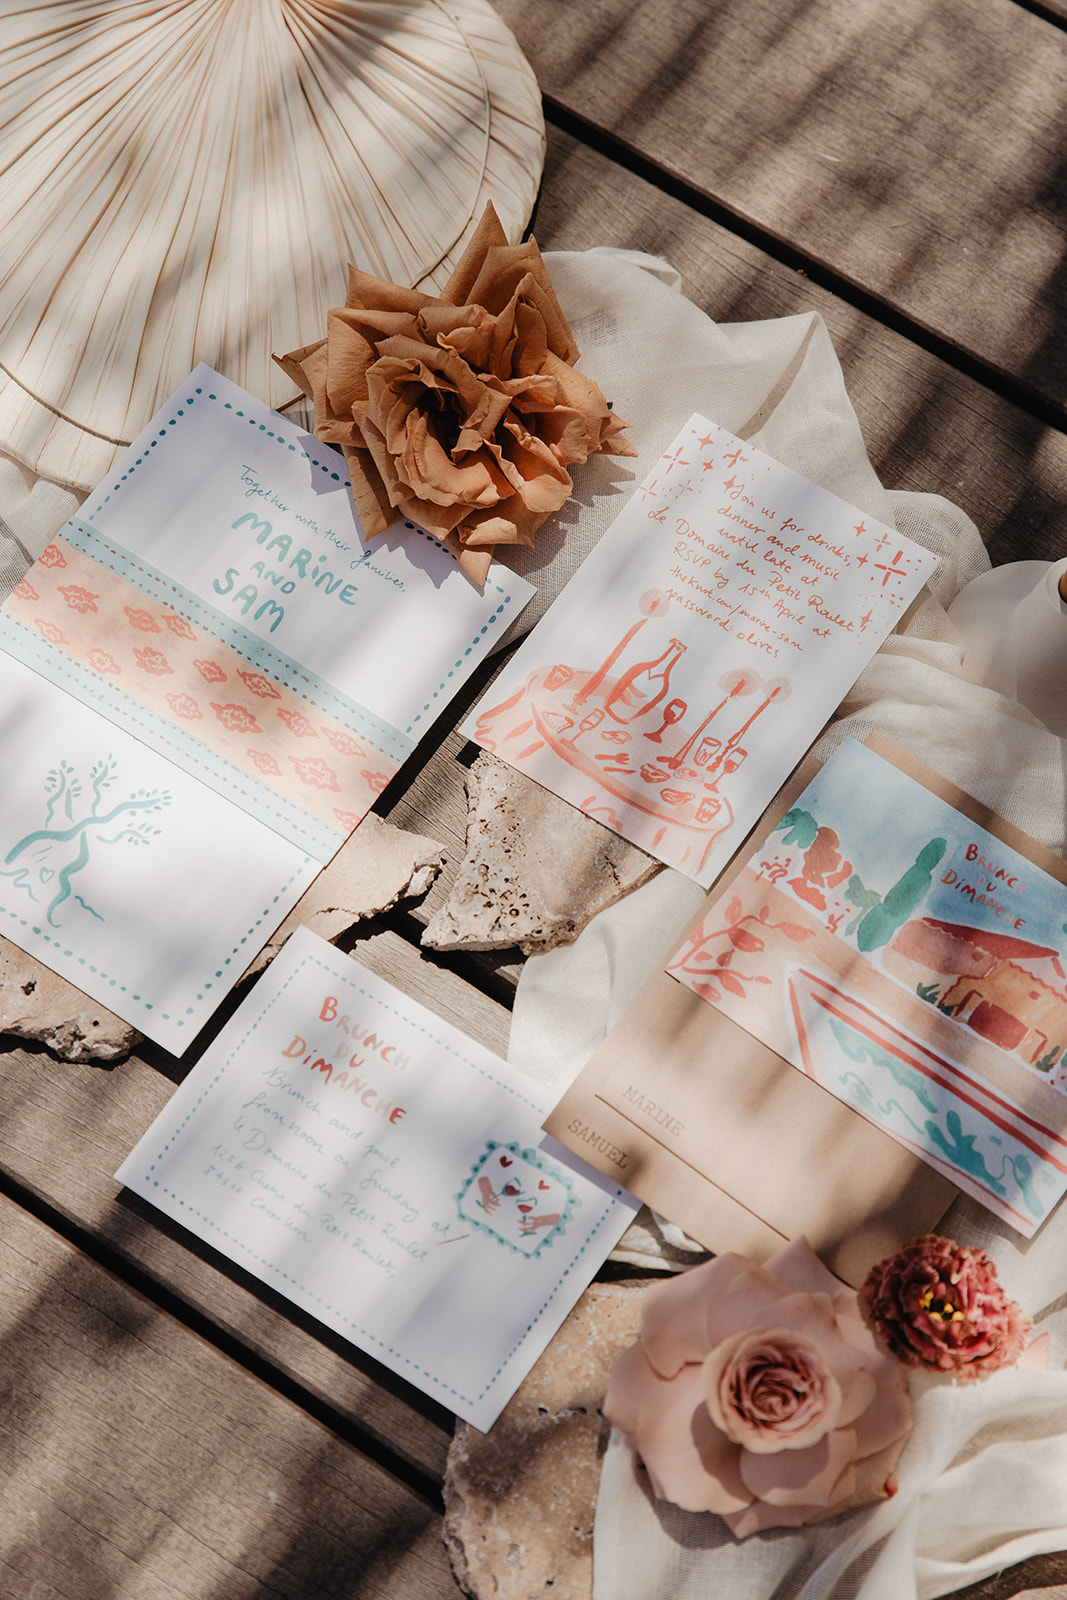 Together with their families,
MARINE
AND
SAM
Join us for drinks,
dinner and music
until late at
Le Domaine du Petit Roulet,
RSVP by 15th April at
theknot.com/marine-sam
password: olives
BRUNCH
DU
DIMANCHE
BRUNCH
DU
DIMANCHE
Brunch and pool
from noon on Sunday at
le Domaine du Petit Roulet
Chemin du Petit Roulet,
Cavaillon
MARINE
SAMUEL